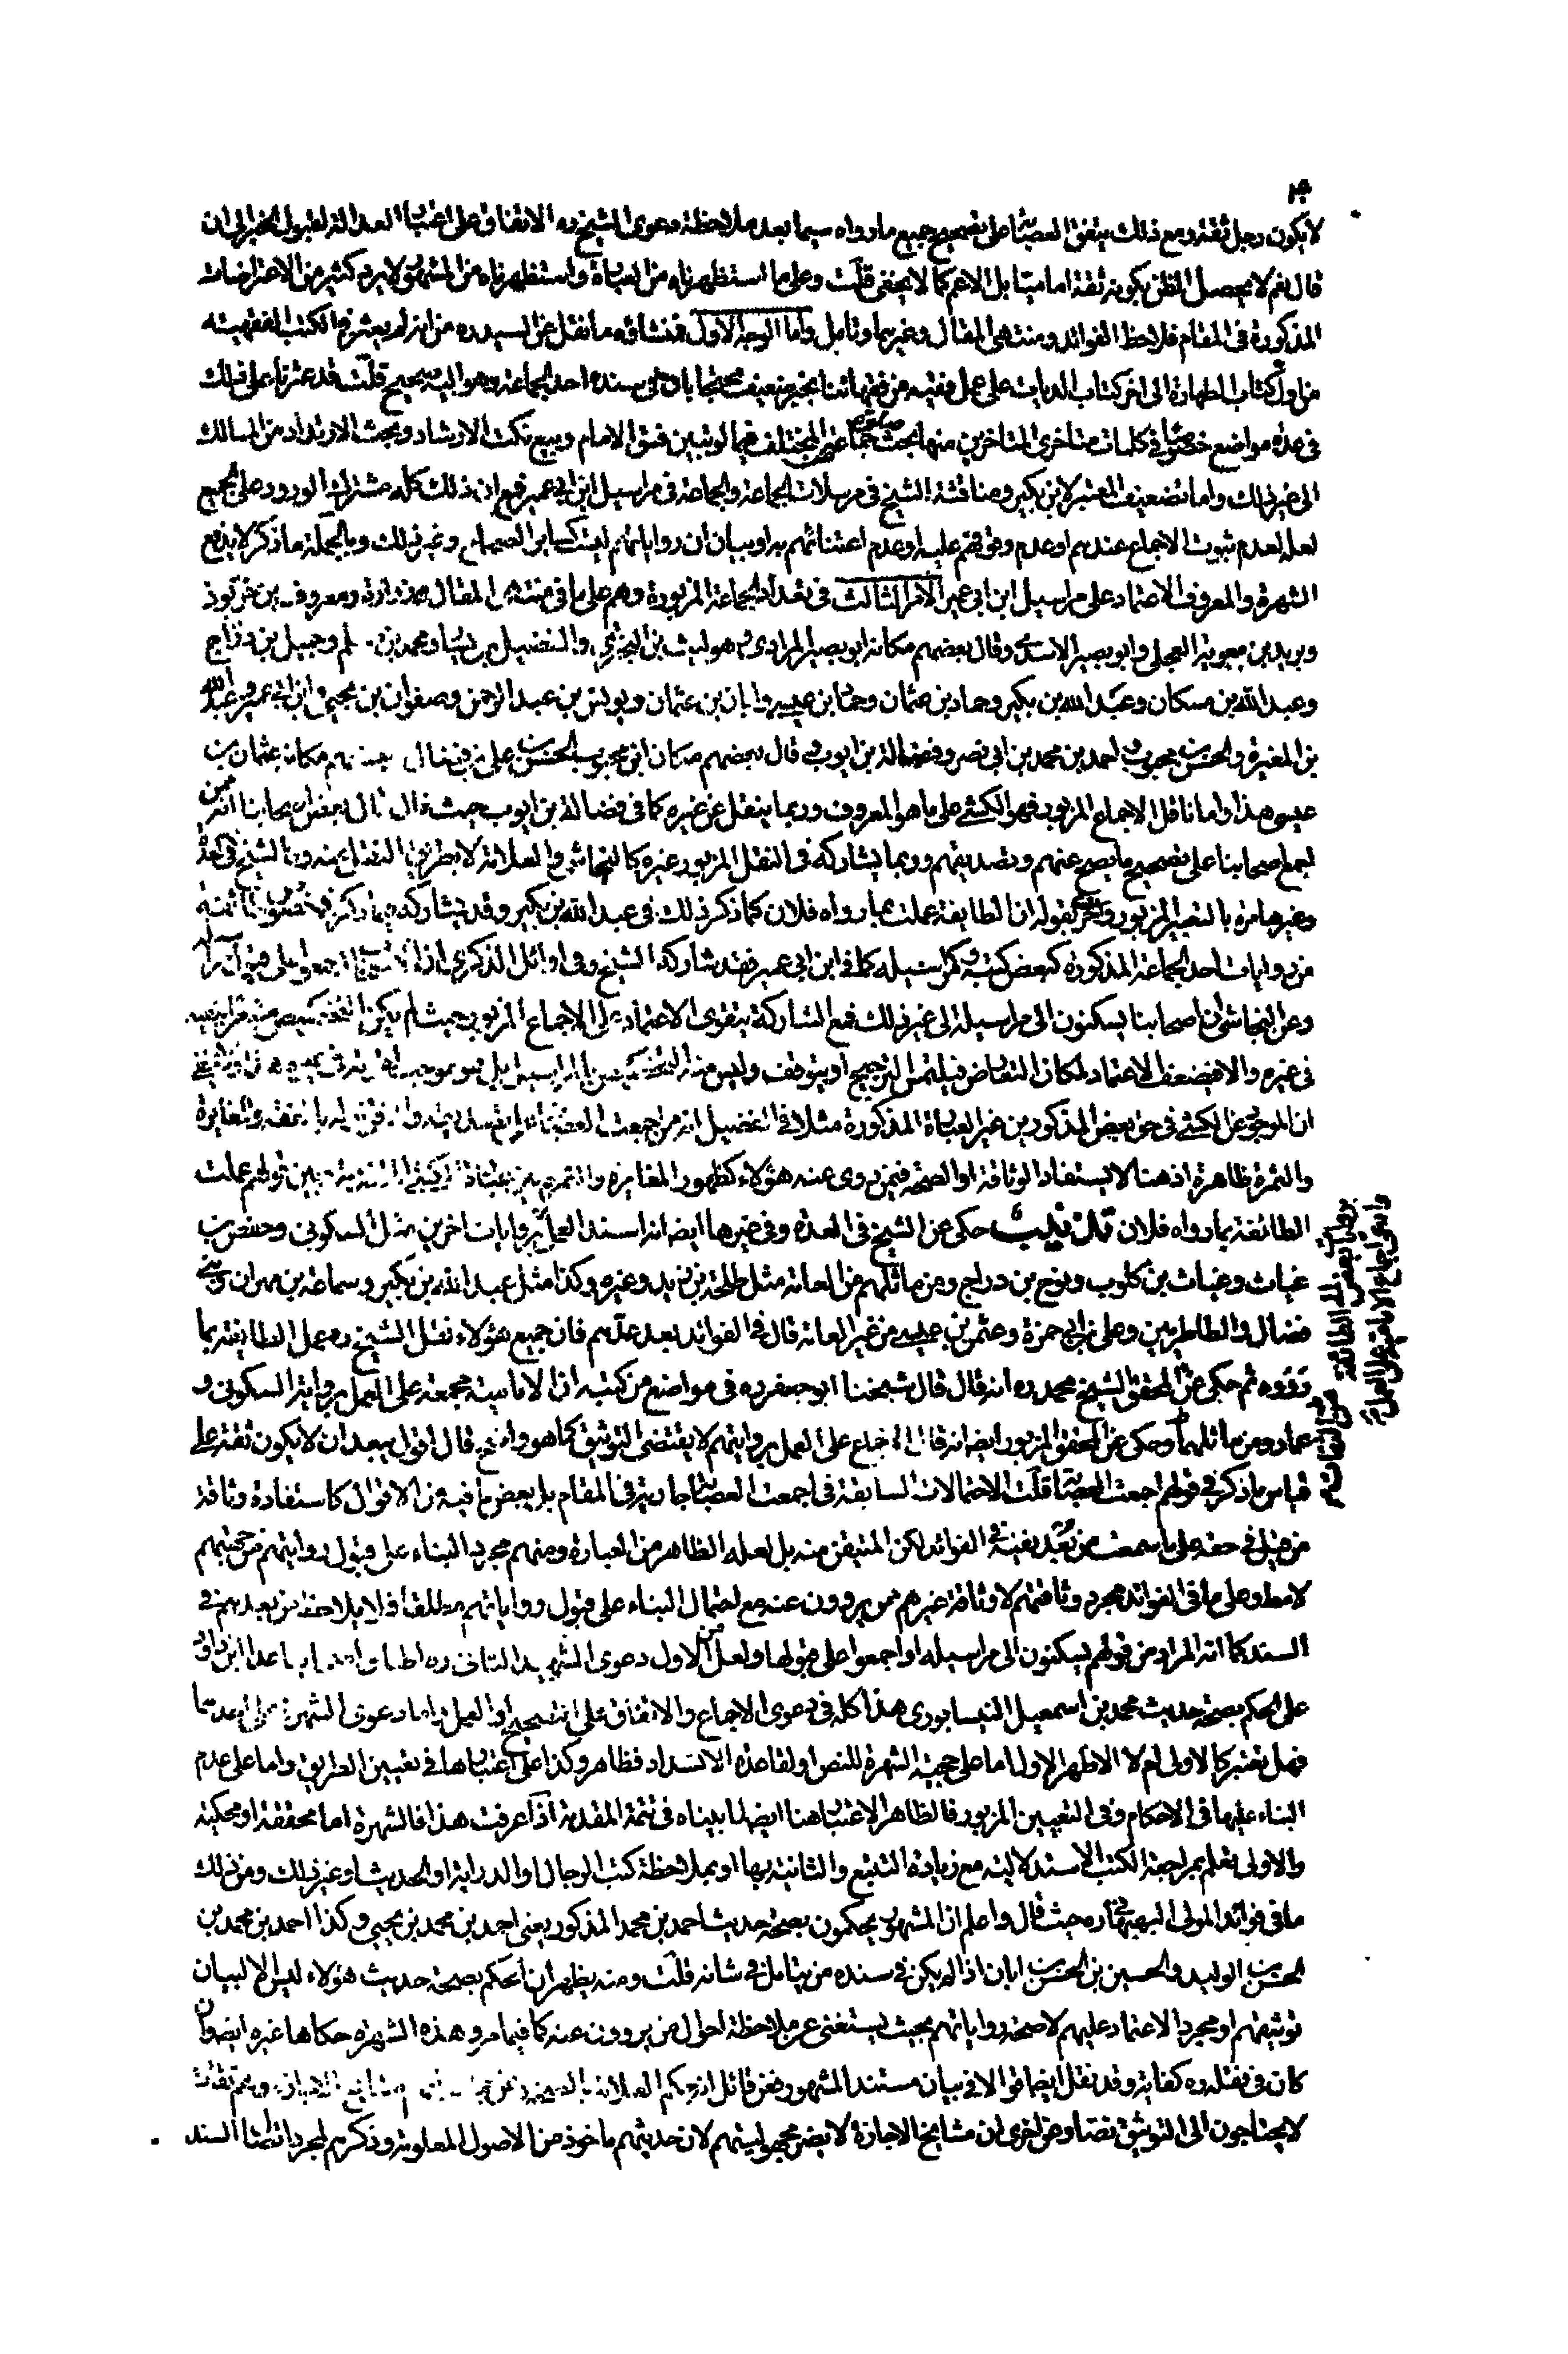 لا يكون رجل ثقة ومع ذلك يتفق العصابة على تصحيح جميع ما رواه سيما بعد ملاحظة دعوى الشيخ ره الاتفاق على اعتبار العدالة لقبول الخبر الى ان
قال نعم لا يحصل الظن بكونه ثقة اماميا بل الاعم كما لا يخفى قلت وعلى ما استظهرناه من العبارة واستظهرناه من المشهور لا يرد كثير من الاعتراضات
المذكورة في المقام فلاحظ الفوائد ومنتهى المقال وغيرهما وتامل واما الوجه الاول فمنشاؤه ما نقل عن السيد ره من انه لم يعثر في الكتب الفقهية
من اول كتاب الطهارة الى اخر كتاب الديات على عمل فقيه من فقهائنا بخبر ضعيف محتجا بان في سنده احد الجماعة وهو اليه صحيح قلت قد عثرنا على ذلك
في عدة مواضع خصوصا في كلمات متاخري المتاخرين منها بحث جماعة عن المختلف فيما لو تبين فسق الامام وبيع نكت الارشاد وبحث الارتداد من المسالك
الى غير ذلك واما تضعيف المعتبر لابن بكير ومناقشة الشيخ في مرسلات الجماعة والجماعة في مراسيل ابن ابي عمير فمع ان ذلك كله مشترك الورود على الجميع
لعله لعدم ثبوت الاجماع عندهم او عدم وقوفهم عليه او عدم اعتنائهم به او بيان ان رواياتهم ليست كساير الصحاح وغير ذلك وبالجملة ما ذكر لا يدفع
الشهرة والمعروف الاعتماد على مراسيل ابن ابي عمير الامر الثالث في تعداد الجماعة المزبورة وهم على ما في منتهى المقال زرارة ومعروف بن خربوذ
وبريد بن معوية العجلي وابو بصير الاسدي وقال بعضهم مكانه ابو بصير المرادي وهو ليث بن البختري والفضيل بن يسار ومحمد بن مسلم وجميل بن دراج
وعبد الله بن مسكان وعبد الله بن بكير وحماد بن عثمان وحماد بن عيسى وابان بن عثمان ويونس بن عبد الرحمن وصفوان بن يحيى وابن ابي عمير وعبد الله
بن المغيرة والحسن بن محبوب واحمد بن محمد بن ابي نصر وفضالة بن ايوب وقال بعضهم مكان ابن محبوب الحسن بن علي بن فضال بعضهم مكانه عثمان بن
عيسى هذا واما ناقل الاجماع المزبور فهو الكشي على ما هو المعروف وربما ينقل عن غيره كما في فضالة بن ايوب حيث قال قال بعض اصحابنا انه ممن
اجمع اصحابنا على تصحيح ما يصح عنهم وتصديقهم وربما يشاركه في النقل المزبور غيره كالنجاشي والعلامة لا بطريق النقل عنه وربما الشيخ في العدة
وغيرها مرة بالتعبير المزبور واخرى بقوله ان الطايفة عملت بما رواه فلان كما ذكر ذلك في عبد الله بن بكير وقد يشاركه فيما ذكر في خصوص طائفة
من روايات احد الجماعة المذكورة كبعض كتبه وكمراسيله كما في ابن ابي عمير فقد شاركه الشيخ وفي اوائل الذكرى ان الاصحاب اجمعوا على قبول مراسيله
وعن النجاشي ان اصحابنا يسكنون الى مراسيله الى غير ذلك فمع المشاركة يتقوى الاعتماد على الاجماع المزبور حيث لم يكن التخصيص
في غيره والا فيضعف الاعتماد لمكان التعارض فيلتمس الترجيح او يتوقف وليس منه التخصيص بالمراسيل بل هو
ان الموجود عن الكشي في حق بعض المذكورين غير العبارة المذكورة مثلا في الفضيل انه من اجمعت العصابة على تصديقه والاقرار له بالفقه والمغايرة
والثمرة ظاهرة اذ هنا لا يستفاد الوثاقة او الصحة فيمن يروى عنه هؤلاء كظهور المغايرة والثمرة بين عبارة الكشي المتقدمة وبين قولهم عملت
الطائفة بما رواه فلان تذنيب حكى عن الشيخ في العدة وفي غيرها ايضا انه اسند العمل بروايات اخرين مثل السكوني وحفص بن
غياث وغياث بن كلوب ونوح بن دراج ومن ماثلهم من العامة مثل طلحة بن زيد وغيره وكذا مثل عبد الله بن بكير وسماعة بن مهران وبني
فضال والطاطريين وعلي بن ابي حمزة وعثمن بن عيسى من غير العامة قال في الفوائد بعد عدهم فان جميع هؤلاء نقل الشيخ ره عمل الطايفة بما
رووه ثم حكى عن المحقق الشيخ محمد ره انه قال قال شيخنا ابو جعفر ره في مواضع من كتبه ان الامامية مجمعة على العمل برواية السكوني و
عمار ومن ماثلهما وحكى عن المحقق المزبور ايضا انه قال الاجماع على العمل بروايتهم لا يقتضي التوثيق كما هو واضح قال اقول يبعد ان لا يكون ثقة على
قياس ما ذكر في قولهم اجمعت العصابة قلت الاحتمالات السابقة في اجمعت العصابة جارية في المقام بل بعض ما فيه من الاقوال كاستفادة وثاقة
من قيل في حقه على ما سمعت من بعد يقينه في الفوائد لكن المتيقن منه بل لعله الظاهر من العبارة ومنهم مجرد البناء على قبول روايتهم من جهتهم
لا مط وعلى ما في الفوائد مجرد وثاقتهم لا وثاقة غيرهم ممن يروون عنه مع احتمال البناء على قبول رواياتهم مطلقا فلا يلاحظ من بعدهم في
السند كما انه المراد من قولهم يسكنون الى مراسيله او اجمعوا على قبولها ولعل من الاول دعوى الشهيد الثاني ره اطباق اصحابنا عدا ابن داود
على الحكم بصحة حديث محمد بن اسمعيل النيسابوري هذا كله في دعوى الاجماع والاتفاق على التصحيح او العمل واما دعوى الشهرة على احدهما
فهل تعتبر كالاولى ام لا الاظهر الاول اما على حجية الشهرة للنص او لقاعدة الانسداد فظاهر وكذا على اعتبارها في تعيين الطريق واما على عدم
البناء عليها في الاحكام وفي التعيين المزبور فالظاهر الاعتبار هنا ايضا لما بيناه في تتمة المقدمة اذا عرفت هذا فالشهرة اما محققة او محكية
والاولى تعلم بمراجعة الكتب الاستدلالية مع زيادة التتبع والثانية بها او بملاحظة كتب الرجال او الدراية او الحديث او غير ذلك ومن ذلك
ما في فوائد المولى البهبهاني ره حيث قال واعلم ان المشهور يحكمون بصحة حديث احمد بن محمد المذكور يعني احمد بن محمد بن يحيى وكذا احمد بن محمد بن
الحسن بن الوليد والحسين بن الحسن بن ابان اذا لم يكن في سنده من يتامل في شانه قلت ومنه يظهر ان الحكم بصحة حديث هؤلاء ليس الا لبيان
توثيقهم او مجرد الاعتماد عليهم لا صحة رواياتهم بحيث يستغنى عن ملاحظة احوال من يروون عنه كما فيما مر وهذه الشهرة حكاها غيره ايضا وان
كان في نقله ره كفاية وقد نقل ايضا اقوالا في بيان مستند المشهور فعن قائل ان حكم العلامة بالصحة مشايخ الاجازة وهم ثقات
لا يحتاجون الى التوثيق نصا وعن اخرى ان مشايخ الاجازة لا يضر مجهوليتهم لان حديثهم ماخوذ من الاصول المعلومة وذكرهم لمجرد اتصال السند